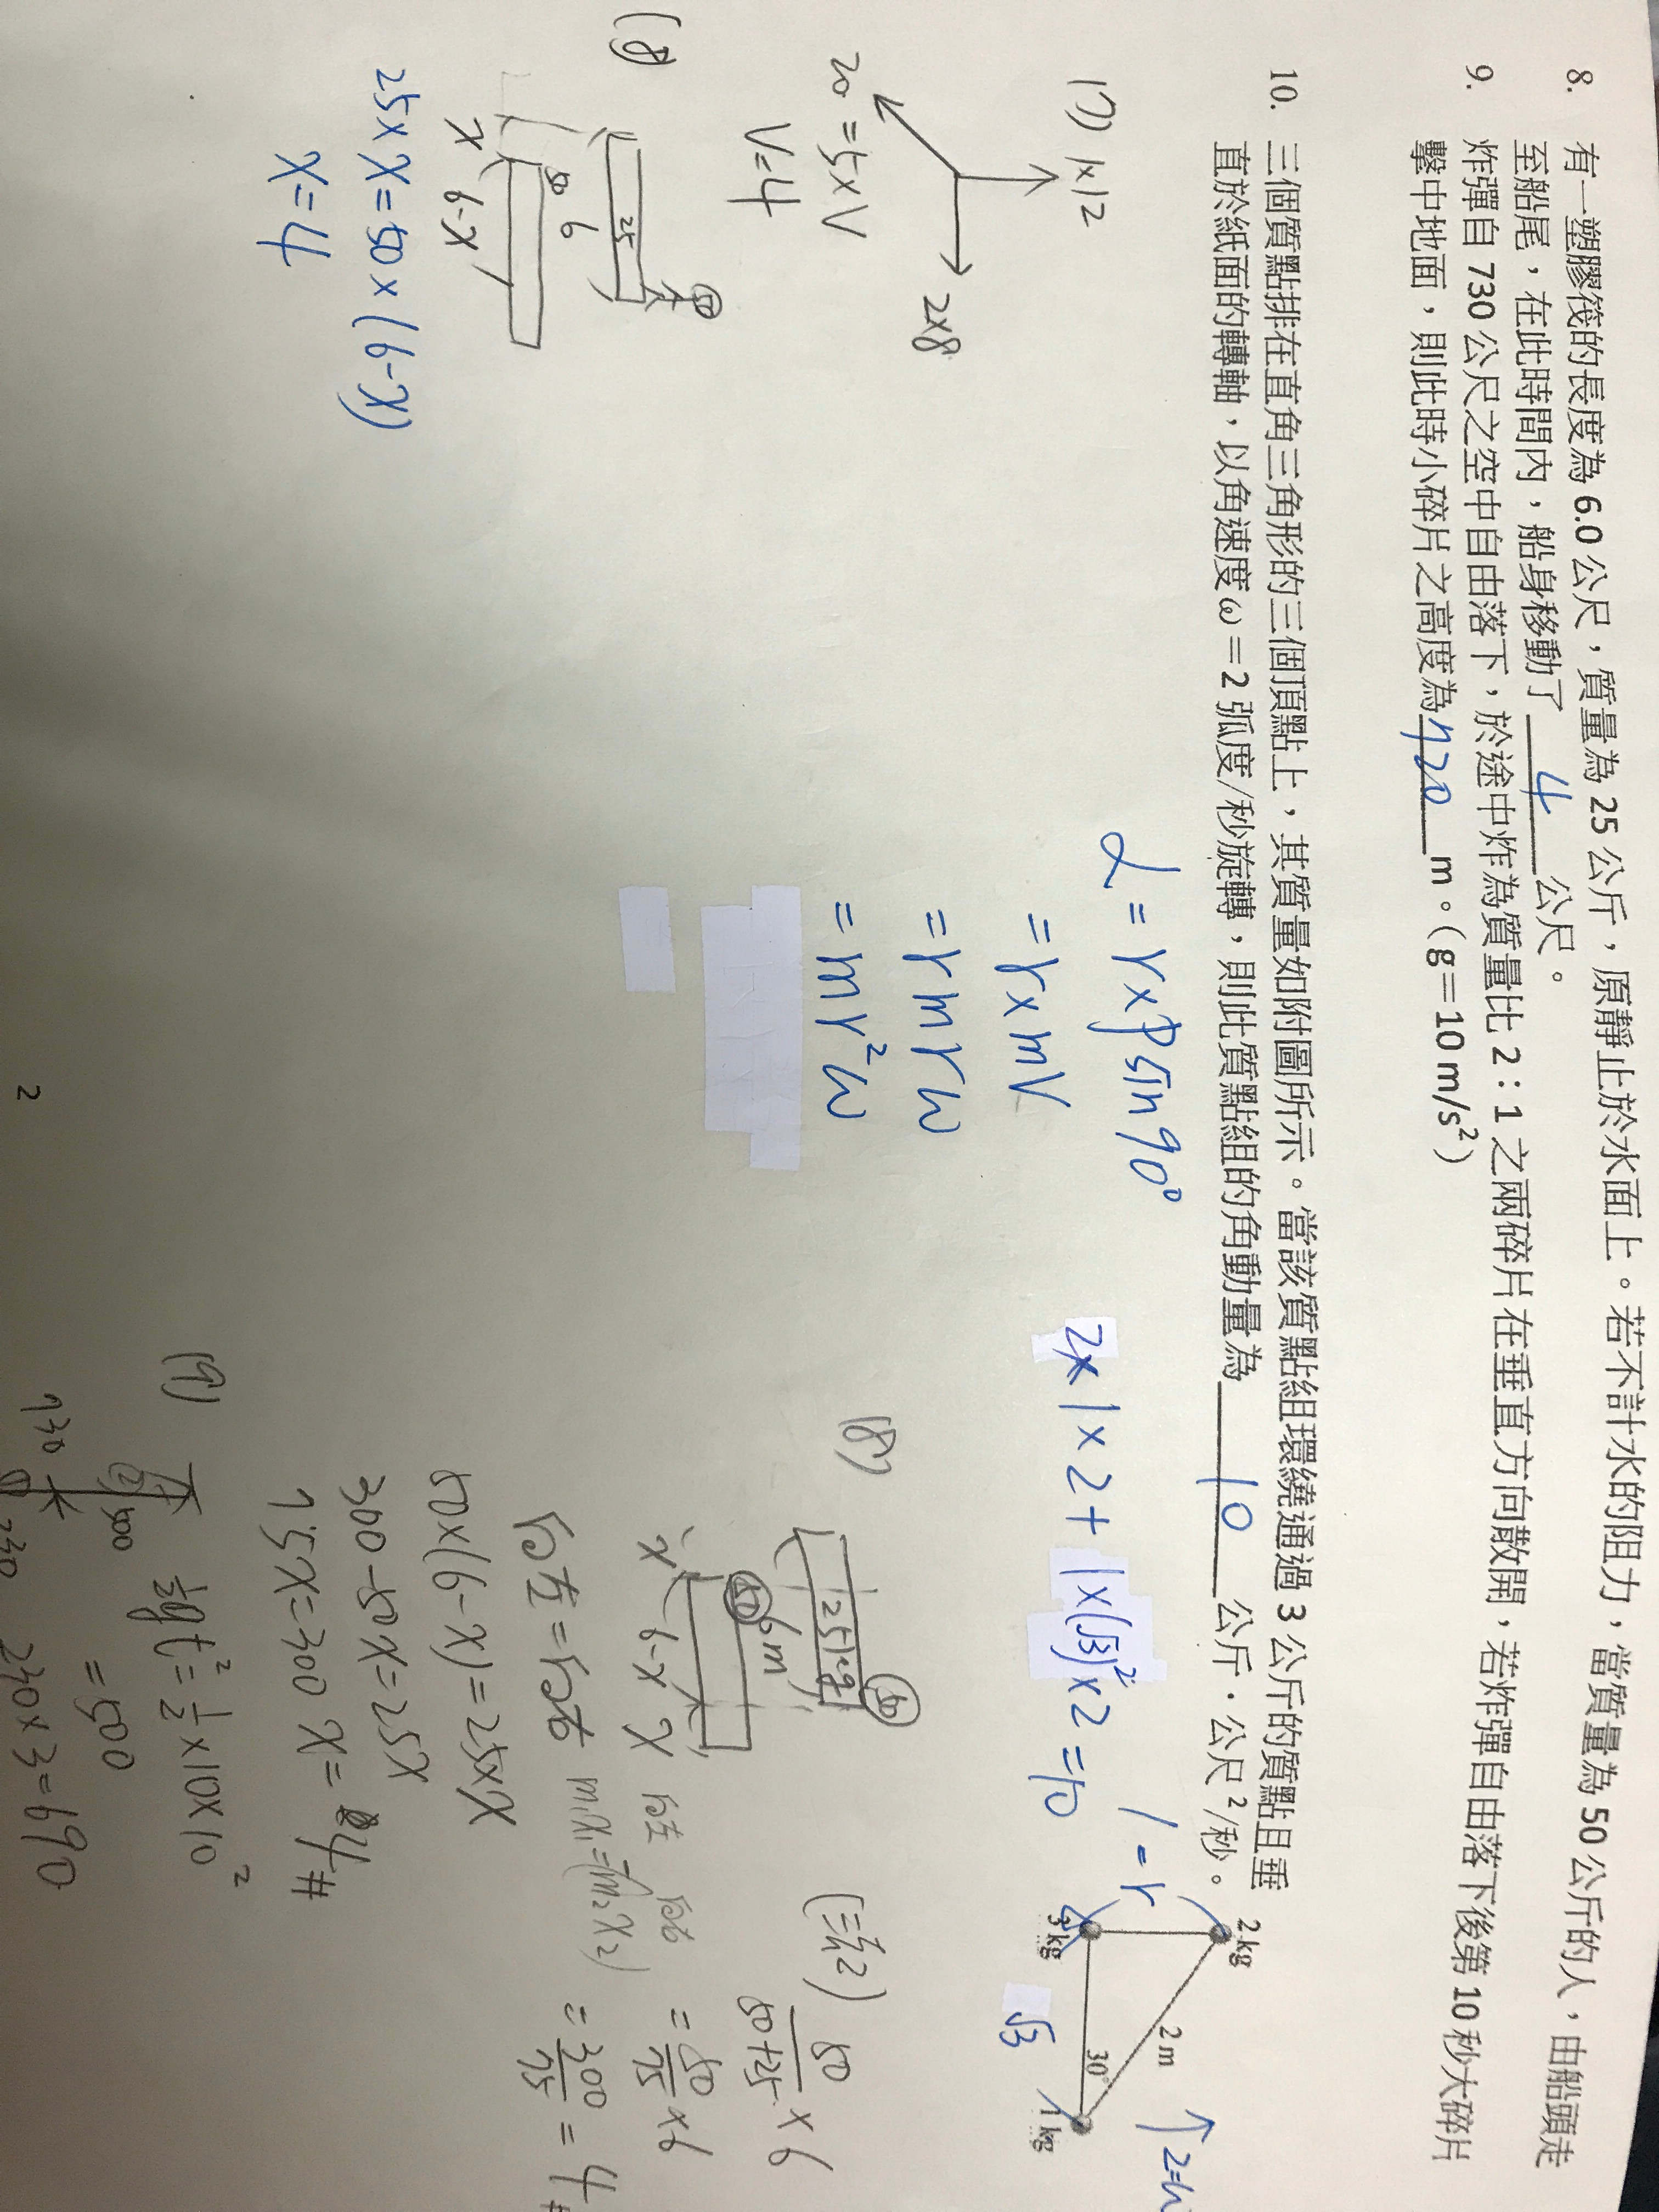 8. 有一塑膠筏的長度為 6.0 公尺，質量為 25 公斤，原靜止於水面上。若不計水的阻力，當質量為 50 公斤的人，由船頭走
至船尾，在此時間內，船身移動了 4 公尺。
9. 炸彈自 730 公尺之空中自由落下，於途中炸為質量比 2：1 之兩碎片在垂直方向散開，若炸彈自由落下後第 10 秒大碎片
擊中地面，則此時小碎片之高度為 m。（g＝10 m/s²）
10. 三個質點排在直角三角形的三個頂點上，其質量如附圖所示。當該質點組環繞通過 3 公斤的質點且垂
直於紙面的轉軸，以角速度ω＝2 弧度/秒旋轉，則此質點組的角動量為 10 公斤．公尺²/秒。
2 kg
2 m
30°
3 kg
1 kg
r=1
√3
(7) 1×12
2×8
20=5×V
V=4
L=r×p sin90°
=r×mV
=rmrω
=mr²ω
2×1×2+1×(√3)²×2=10
(8)
25
50
6
x 6-x
25×x=50×(6-x)
x=4
(8)
50
25kg
6m
50
x 6-x x
右=左
50×(6-x)=25×x
300-50x=25x
75x=300 x=4#
m₁x₁=(m₂x₂)
(法二)
50/50+25 ×6
=50/75 ×6
=300/75=4#
(9)
730
500
230
½gt²=½×10×10²
=500
230×3=690
2